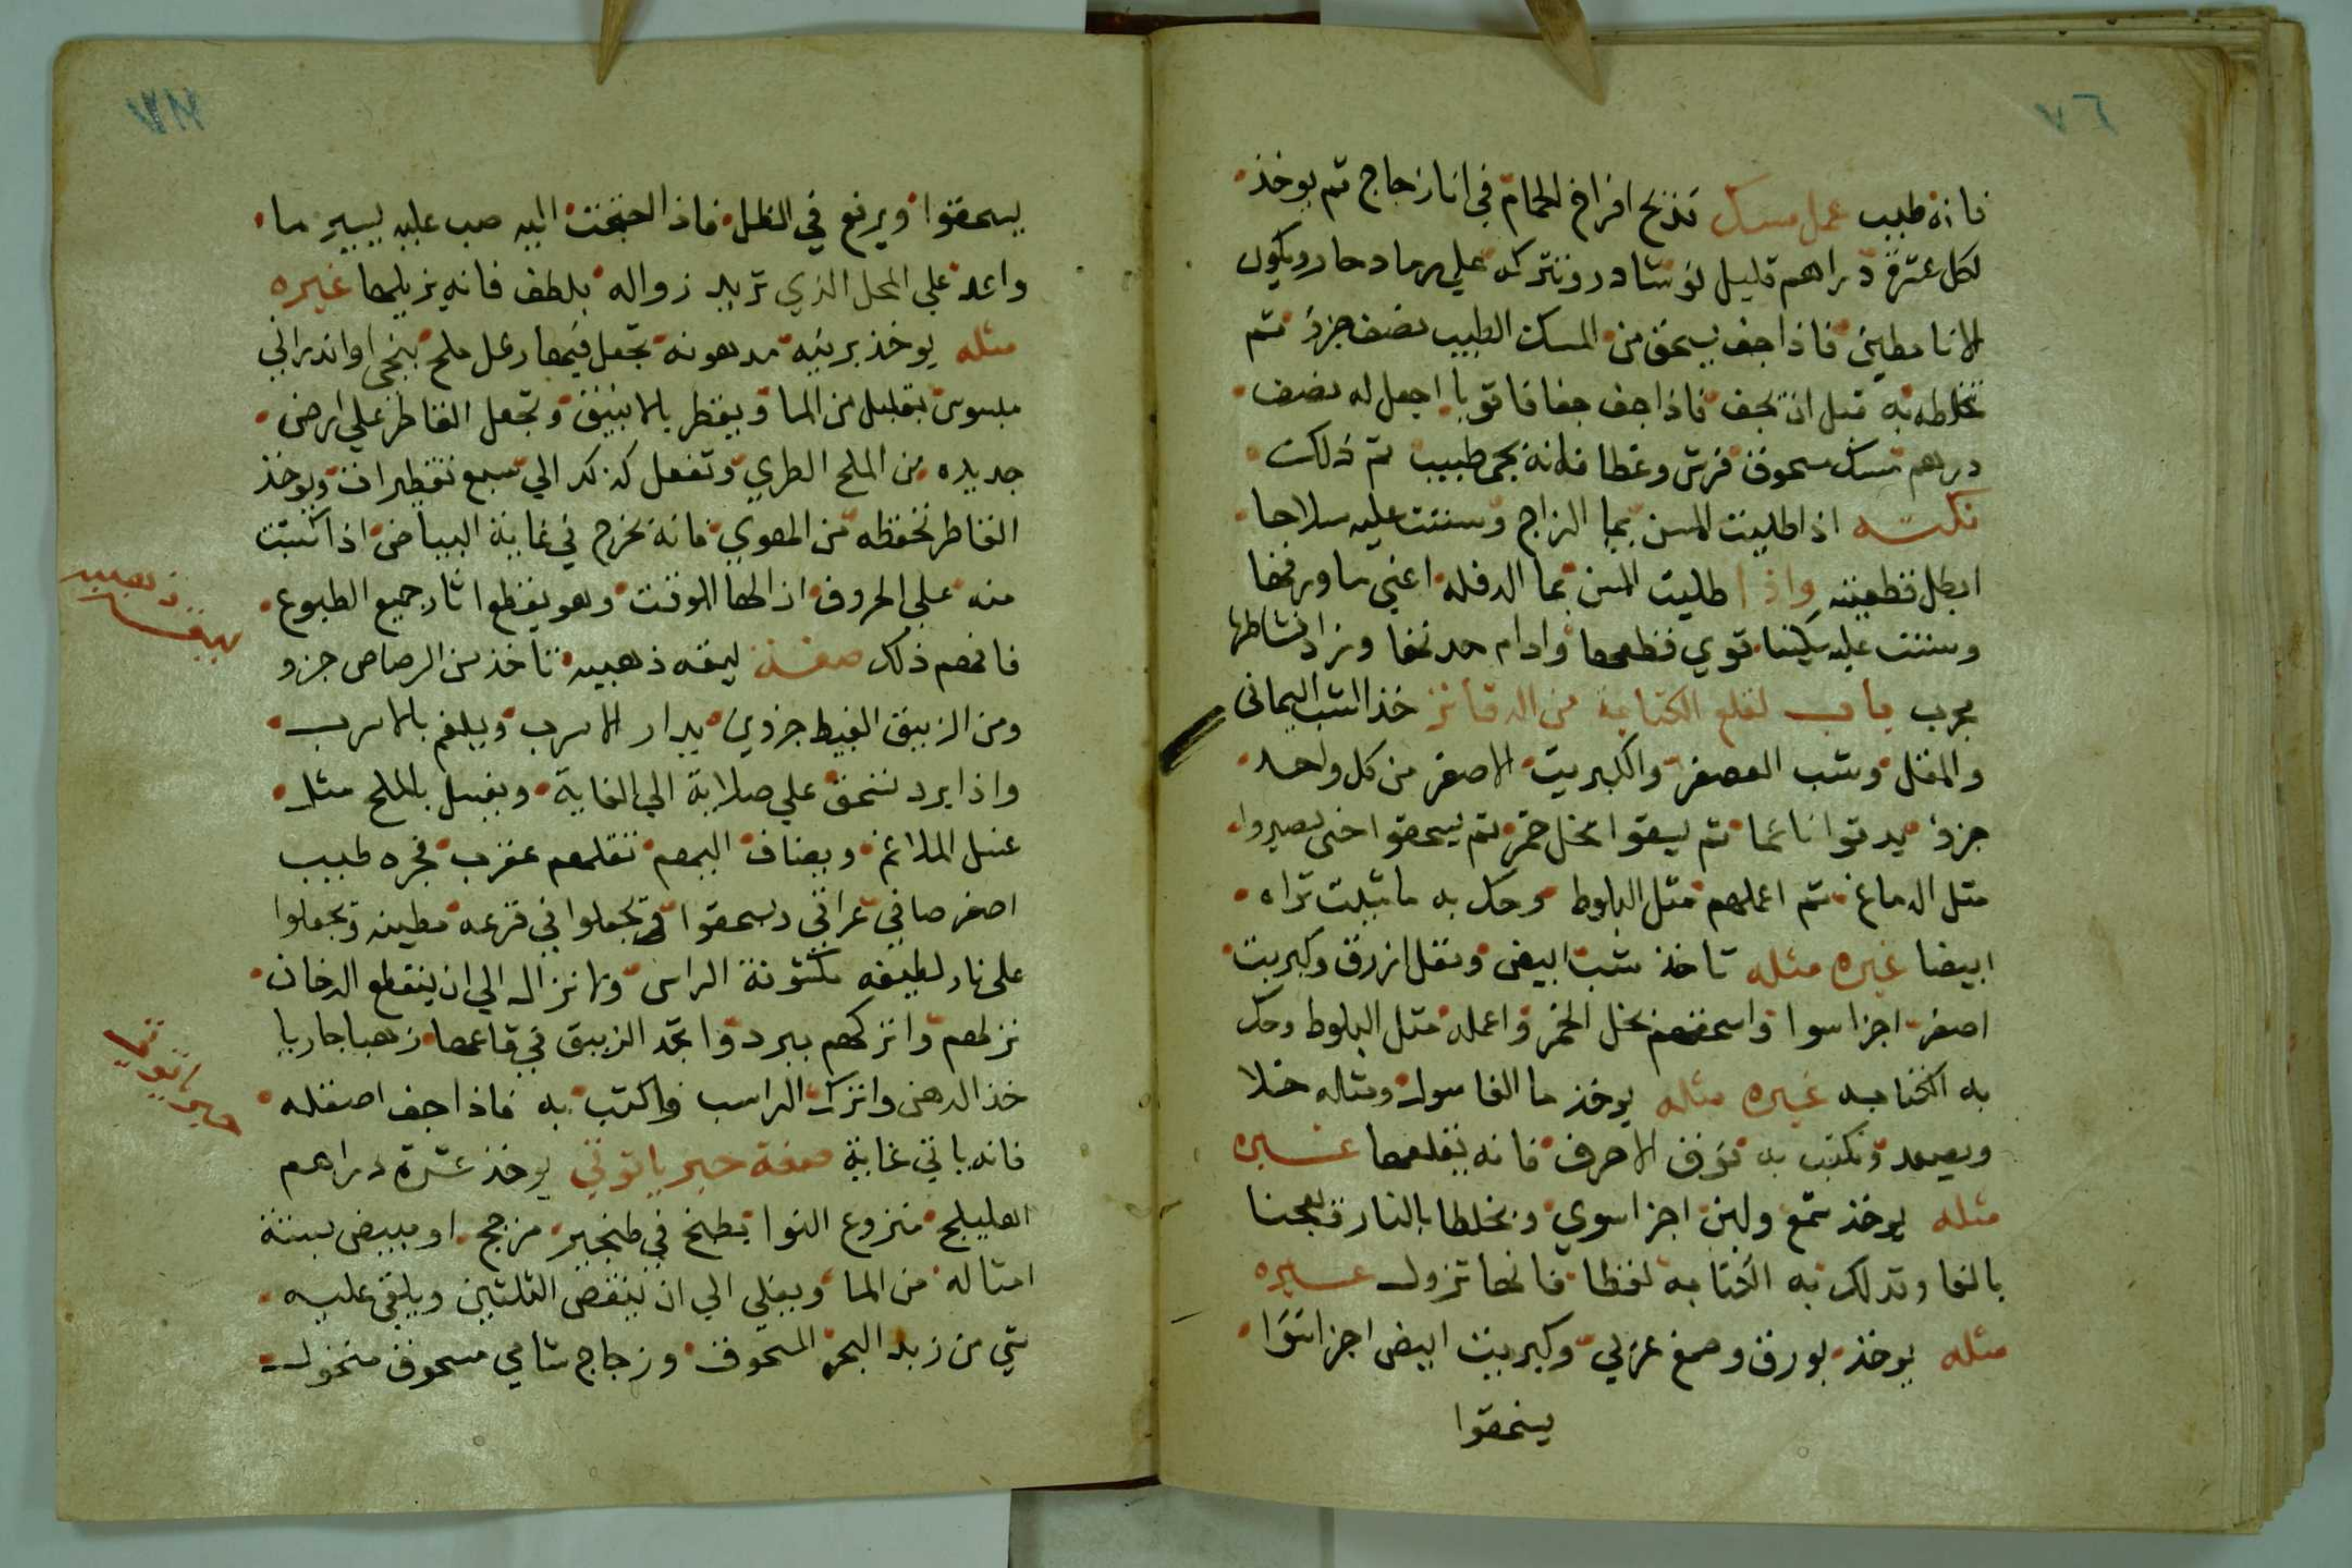 ٧٦
فانه طيب عمل مسك تذبح افراخ الحمام في انا زجاج تم يوخذ
لكل عشرة دراهم قليل نوشادر وتتركه علي رماد حار ويكون
الانا مطين فاذا جف يسحق من المسك الطيب نصف جزؤ تم
تخلطه به قبل ان يجف فاذا جف جفافا قويا اجعل له نصف
درهم مسك مسحوق فرش وغطا فانه يجي طيب تم ذلك
نكته اذا طليت المسن بما الزاج وسننت عليه سلاحا
ابطل قطعيته واذا طليت المسن بما الدفله اعني ما ورقها
وسننت عليه سكينا قوي قطعها وادام حدتها وزاد نشاطها
مجرب باب لقلع الكتابة من الدفاتر خذ الشب اليماني
والمقل وشب العصفر والكبريت الاصفر من كل واحد
جزؤ يدقوا ناعما تم يسقوا بخل خمر تم يسحقوا حتي يصيروا
مثل الدماغ تم اعملهم مثل البلوط وحك به ما شيت تراه
ابيضا غيره مثله تاخذ شب ابيض ومقل ازرق وكبريت
اصفر اجزا سوا واسحقهم بخل الخمر واعمله مثل البلوط وحك
به الكتابه غيره مثله يوخذ ما الغاسول ومثاله خلا
ويصعد وتكتب به فوق الاحرف فانه يقلعها غيره
مثله يوخذ شمع ولبن اجزا سوي ويخلطا بالنار ويعجنا
بالنعا وتدلك به الكتابه لفظا فانها تزول غيره
مثله يوخذ بورق وصمغ عربي وكبريت ابيض اجزا سوا
يسحقوا
يسحقوا ويرفع في الظل فاذا احتجت اليه صب عليه يسير ما
واعد علي المحل الذي تريد زواله بلطف فانه يزيلها غيره
مثله يوخذ برنيه مدهونه تجعل فيها رطل ملح بنجي او اندراني
مبسوس بقليل من الما ويقطر بالانبيق وتجعل القاطر علي ارض
جديده من الملح الطري وتفعل كذلك الي سبع تقطيرات ويوخذ
القاطر تحفظه من الهوي فانه يخرج في غاية البياض اذا كتبت
منه علي الحروف ازالها الوقت وهو يقطع اثار جميع الطبوع
فافهم ذلك صفة ليقه ذهبيه تاخذ من الرصاص جزو
ومن الزيبق الغبيط جزوين يدار الاسرب ويلغم بالاسرب
واذا برد تسحق علي صلاية الي الغاية ويغسل بالملح مثل
غسل الملاغم ويضاف اليهم تقلهم عقرب بخره طيب
اصفر صافي عراقي ويسحقوا ويجعلوا في قرعه مطينه ويجعلوا
على نار لطيفه مكشوفة الراس ولا تزاله الي ان ينقطع الدخان
نزلهم واتركهم يبردوا تجد الزيبق في قاعها ذهبا جاريا
خذ الدهن واترك الراسب واكتب به فاذا جف اصقله
فانه ياتي غاية صفة حبر ياقوتي يوخذ عشرة دراهم
اهليلج منزوع النوا يطبخ في طنجير مزجج او مبيض بستة
امثاله من الما ويغلي الي ان ينقص الثلثين ويلقي عليه
شي من زبد البحر المسحوق وزجاج شامي مسحوق منخول
ليقه ذهبيه
حبر ياقوتي